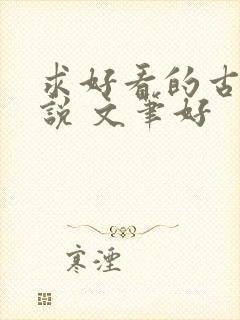 求好看的古
说 文笔好
寒湮